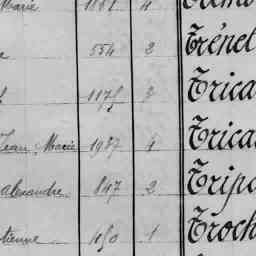 Marie 1881 4
e 554 2 Trénel
1175 3 Trica
Jean, Marie 1987 4 Trica
alexandre 847 2 Trip
tienne 1050 1 Troch